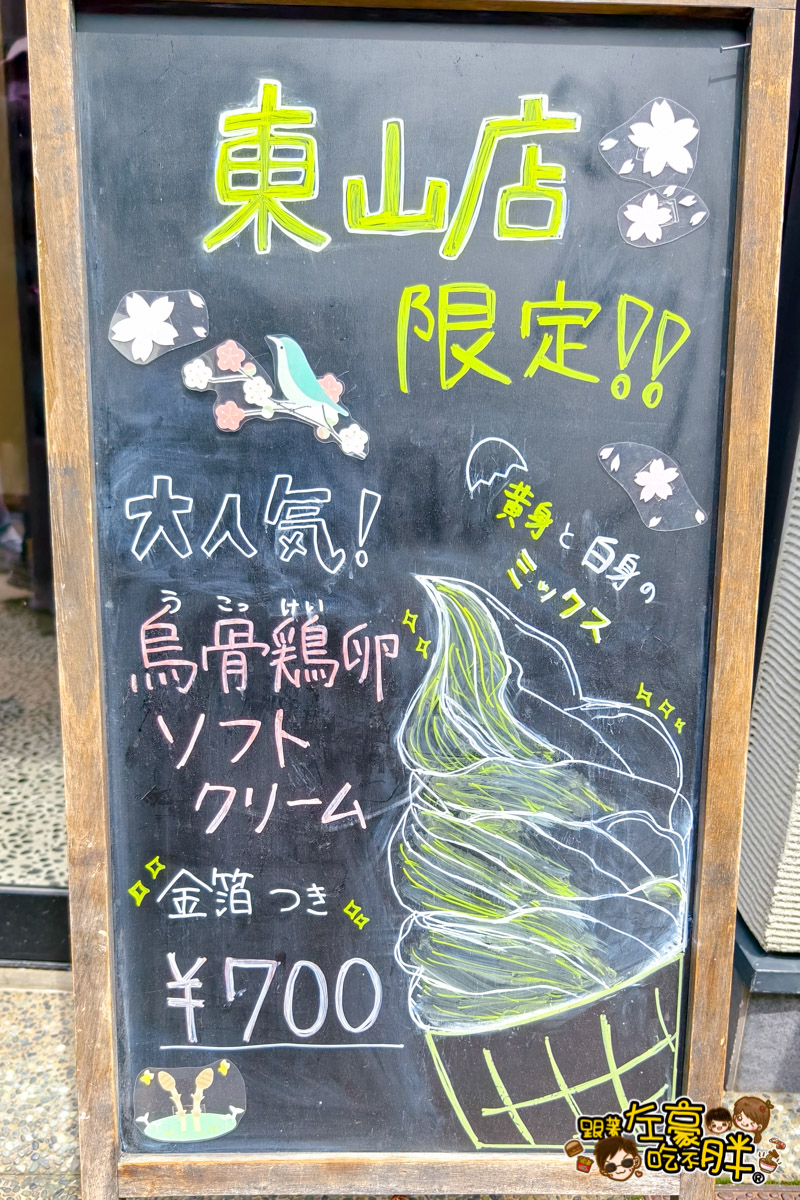 東山店
限定!!
大人気!
黄身と白身の
ミックス
うこっけい
烏骨鶏卵
ソフト
クリーム
金箔つき
¥700
跟著左豪吃不胖®